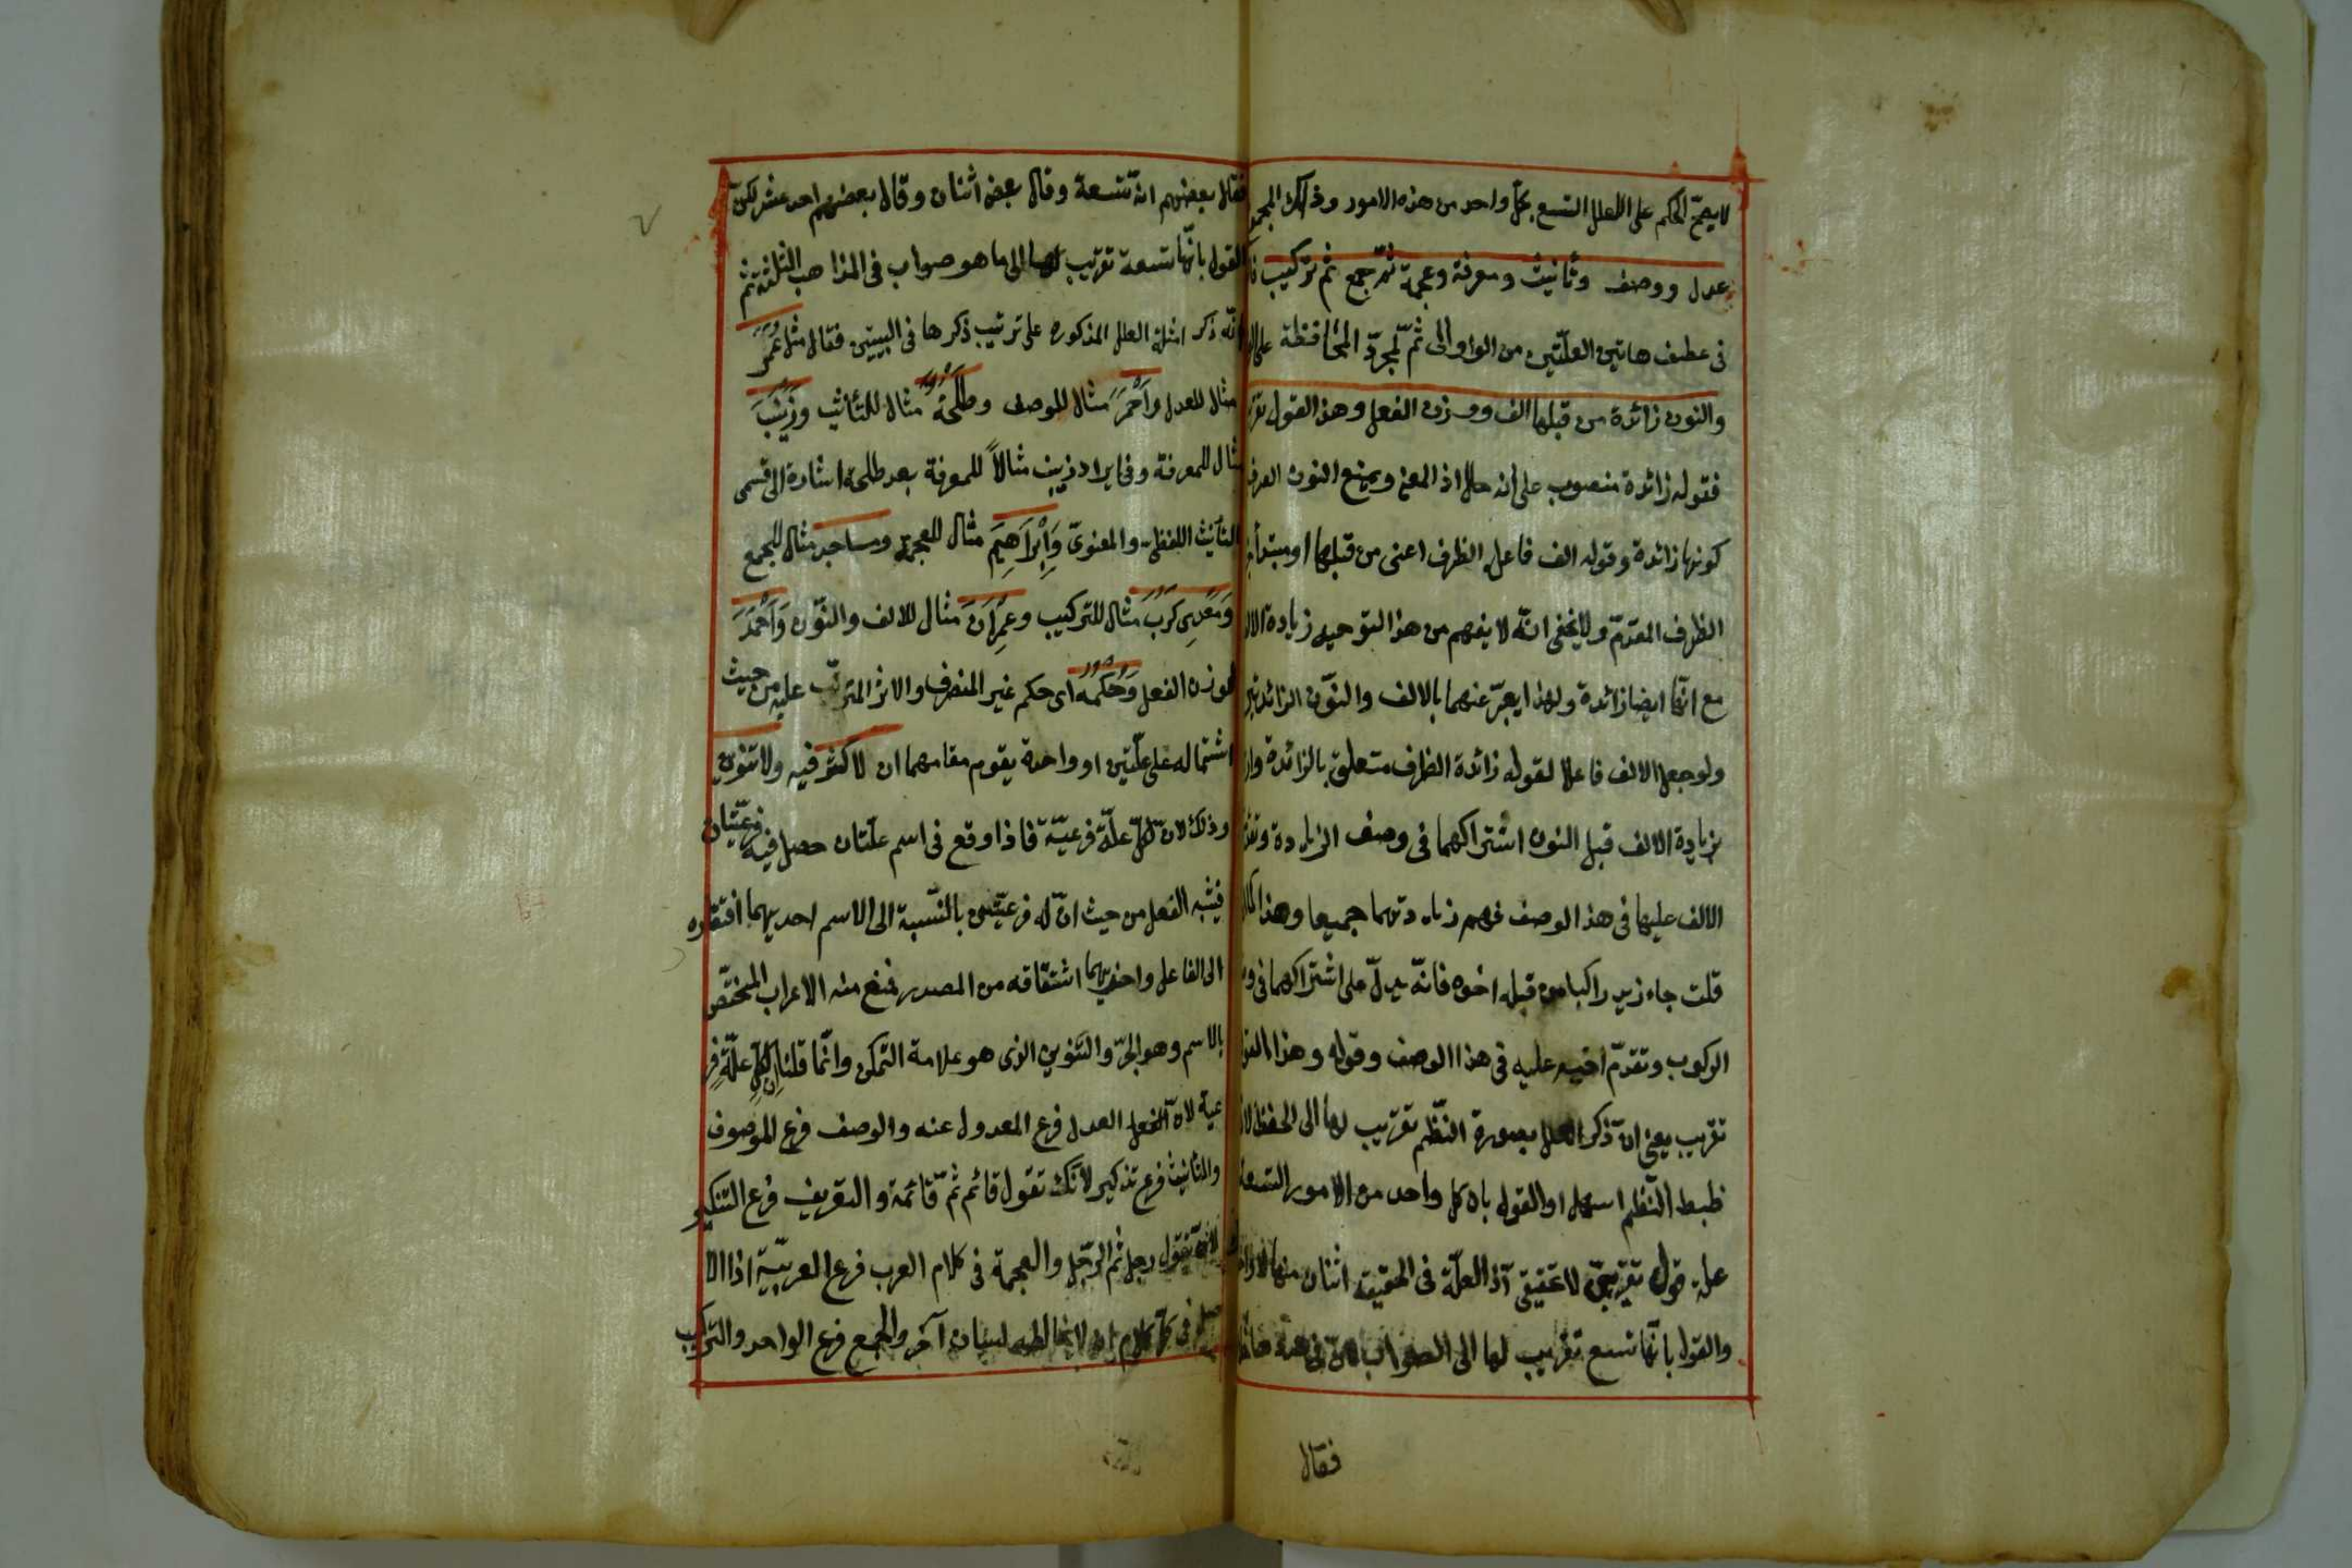 لا يصحّ الحكم على العلل التسع بكل واحد من هذه الامور وذلك المجموع
عدل ووصف وتأنيث ومعرفة وعجمة ثمّ جمع ثم تركيب
فى عطف هاتين العلّتين من الواو الى ثمّ لمجرّد المحافظة على
والنون زائدة من قبلها الف ووزن الفعل وهذا القول تقر
فقوله زائدة منصوب على انه حال اذ المعنى ويمنع النون الصرف
كونها زائدة وقوله الف فاعل الظرف اعنى من قبلها او مبتدأ
الظرف المقدّم ولا يخفى انّه لا يفهم من هذا التوجيه زيادة الال
مع انّها ايضا زائدة ولهذا يعبّر عنهما بالالف والنّون الزائدتين
ولو جعل الالف فاعلا لقوله زائدة الظرف متعلق بالزائدة وار
بزيادة الالف قبل النون اشتراكهما فى وصف الزيادة وتقد
الالف عليها فى هذا الوصف فهم زيادتهما جميعا وهذا كما
قلت جاء زيد راكبا من قبله اخوه فانّه يدلّ على اشتراكهما فى و
الركوب وتقدّم اخيه عليه فى هذا الوصف وقوله وهذا القو
تقريب يعنى انّ ذكر العلل بصورة النّظم تقريب لها الى الحفظ لان
ظبط النّظم اسهل او القول بان كل واحد من الامور التسعة
علة قول تقريبىّ لا تحقيقى اذ العلّة فى الحقيقة اثنان منها
والقول بانّها تسع تقريب لها الى الصواب لانّ فى
فقال
فقال بعضهم انّه تسعة وقال بعض اثنان وقال بعضهم احد عشر لكن
القول بانّها تسعة تقريب لها الى ما هو صواب فى المذاهب الثلثة ثم
انّه ذكر امثلة العلل المذكوره على ترتيب ذكرها فى البيتين فقال مثل عمر
مثال للعدل واَحْمَرَ مثال للوصف وطلحة مثال للتأنيث وزينب
مثال للمعرفة وفى ايراد زينب مثالاً للمعرفة بعد طلحة اشارة الى قسمى
التأنيث اللفظى والمعنوىّ وَاِبْرَاهِيَمَ مثال للعجمة ومساجد مثال للجمع
وَمَعْدِى كَرِبَ مثال للتركيب وعِمْرَانَ مثال للالف والنّون وَاَحْمَدَ
لوزن الفعل وحكمه اى حكم غير المنصرف والاثر المترتّب عليه من حيث
اشتماله على علّتين او واحدة يقوم مقامهما ان لا كسر فيه ولا تنوين
وذلك لانّ لكلّ علّة فرعيّة فاذا وقع فى اسم علّتان حصل فيه فرعيّتان
فيشبه الفعل من حيث انّ له فرعيّتين بالنّسبة الى الاسم احديهما افتقاره
الى الفاعل واخريهما اشتقاقه من المصدر فمنع منه الاعراب المختصّ
بالاسم وهو الجرّ والتنوين الذى هو علامة التمكن وانّما قلنا ان لكل علّة فر
عية لانّ العدل فرع المعدول عنه والوصف فرع الموصوف
والتأنيث فرع تذكير لانّك تقول قائم ثمّ قائمة والتعريف فرع التنكير
لانّك تقول رجل ثم الرّجل والعجمة فى كلام العرب فرع العربيّة اذ الا
صل فى كل كلام ان لا يخالطه لسان آخر والجمع فرع الواحد والتركيب